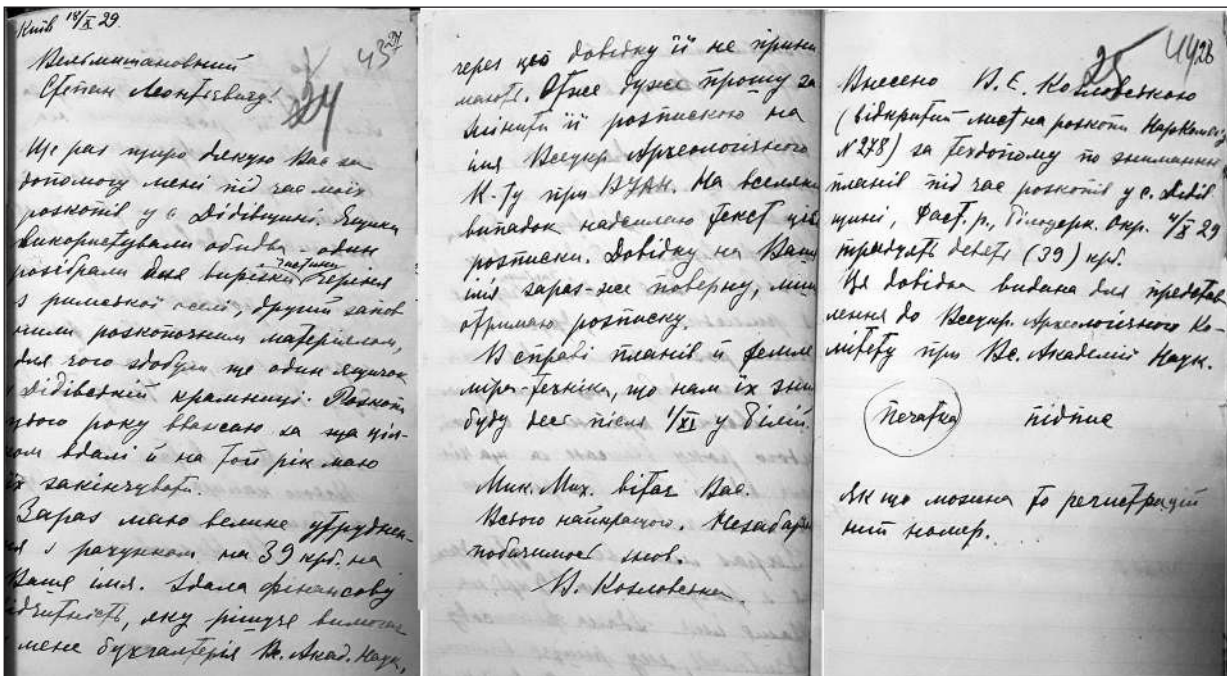 Київ 18/X 29.
43
24
Вельмишановний
Степан Леонтієвичу!
Ще раз щиро дякую Вас за
допомогу мені під час моїх
розкопів у с. Дідівщині. Ящики
використували обидва – один
розібрали для вирізки частини череня
з римської оселі, другий запов
нили розкопочним матеріялом,
для чого здобули ще один ящичок
у Дідівській крамниці. Розкопи
цього року вважаю за ще ціл-
ком вдалі й на той рік маю
їх закінчувати.
Зараз маю велике утруднен-
ня з рахунком на 39 крб. на
Ваше імя. Здала фінансову
відчитність, яку рішуче вимагає
мене бухгалтерія Вс. Акад. Наук,
через цю довідку її не прийм
мають. Отже дуже прошу за
мінити її розпискою на
імя Всеукр. Археологічного
К-ту при ВУАН. На всяки
випадок надсилаю текст ціє
розписки. Довідку на Ваше
імя зараз-же поверну, лиш
отримаю розписку.
В справі планів й землемі
міра-техніка, що нам їх зніма
буду десь після 1/XI у Білій.
Мик. Мих. вітає Вас.
Всього найкращого. Незабаром
побачимось знов.
В. Козловська.
25
44
28
Внесено В. Є. Козловською
(відкритий лист на розкопи НаркомОсв
N 278) за техдопомогу по зніманню
планів під час розкопів у с. Дідів
щині, Фаст. р., Білоцерк. Окр. 4/X 29
тридцять девять (39) крб.
Ця довідка видана для представ
лення до Всеукр. Археологічного Ко-
мітету при Вс. Академії Наук.
Печатка підпис
Як що можна то регистрацій
ний номер.